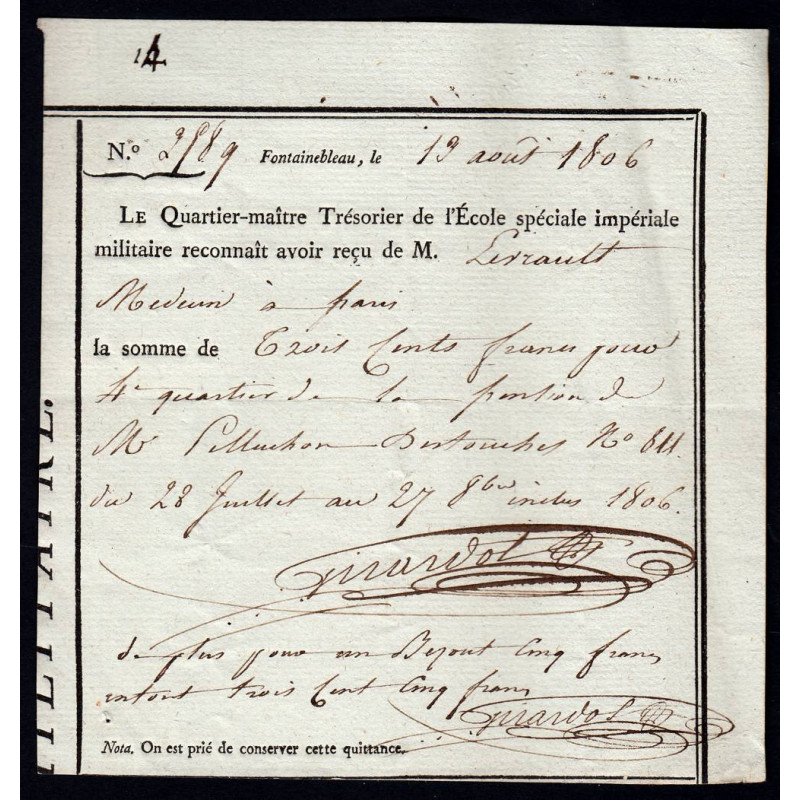 14
N.º 2589 Fontainebleau, le 13 août 1806
LE Quartier-maître Trésorier de l'École spéciale impériale
militaire reconnaît avoir reçu de M. Levrault
Medecin à paris
la somme de Trois Cents francs pour
4e quartier de la pention de
Mr Pelluchon Destouches No 811.
du 28 Juillet au 27 8bre inclus 1806.
girardot
de plus pour un Bezout Cinq francs
entout trois Cent Cinq francs
girardot
Nota. On est prié de conserver cette quittance.
MILITAIRE.